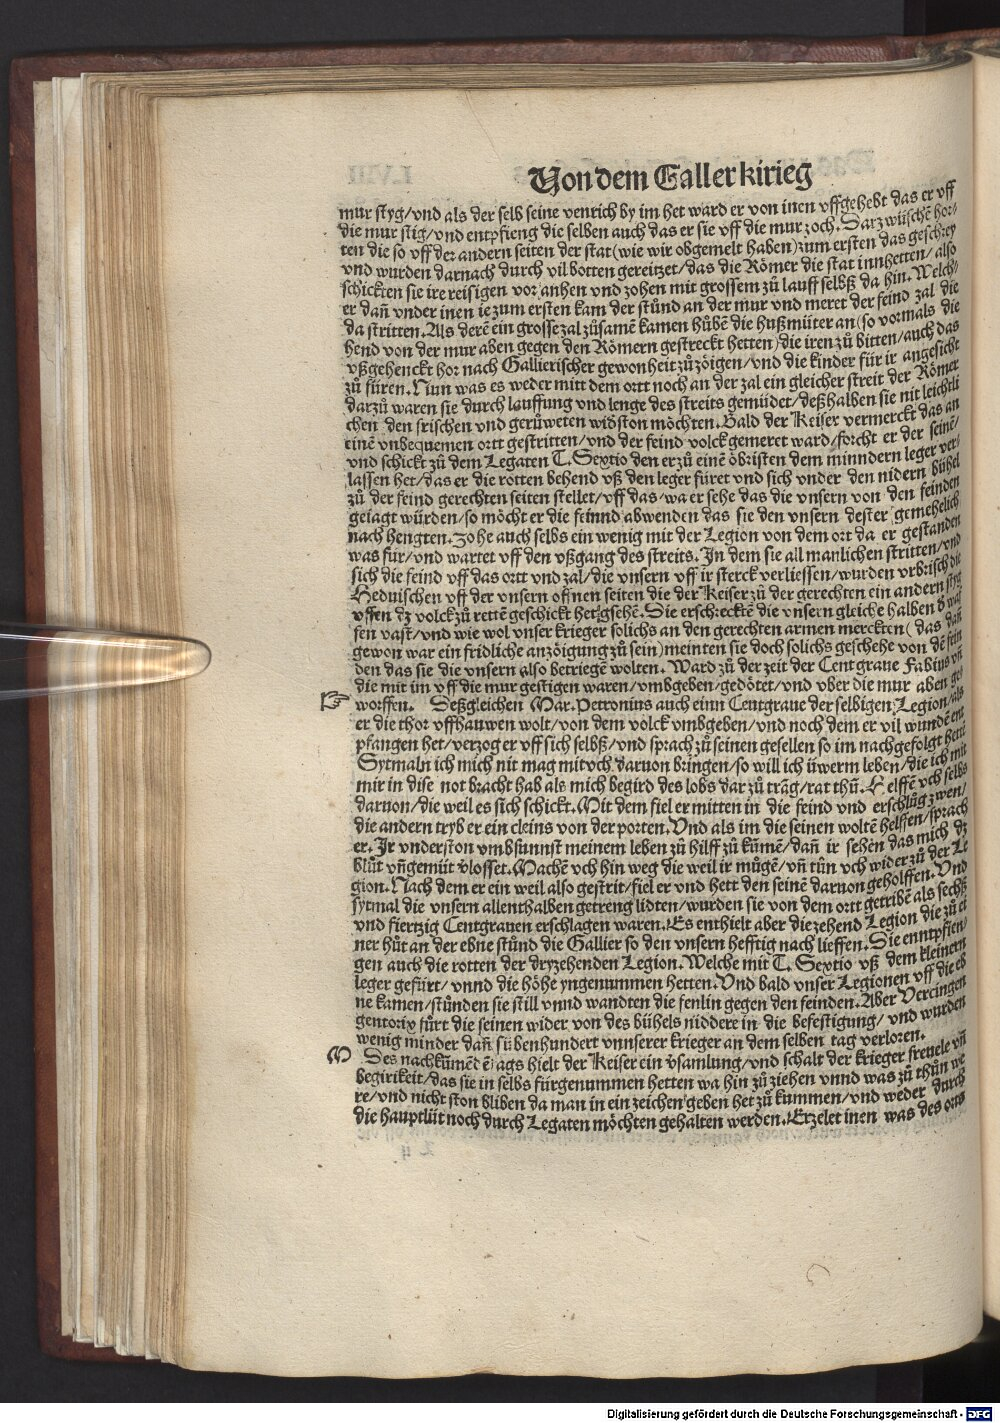 Von dem Gallerkirieg
mur styg/vnd als der selb seine venrich by im het ward er von inen vffgehebt das er vff
die mur stig/vnd entpfieng die selben auch das er sie vff die mur zoch. Darzwüschē hor⸗
ten die so vff der andern seiten der stat (wie wir obgemelt haben) zum ersten das geschrey
vnd wurden darnach durch vil botten gereitzet/das die Römer die stat innhetten/also
schickten sie ire reisigen vor anhen vnd zohen mit grossem zů lauff selbß da hin. Welch⸗
er dañ vnder inen ie zum ersten kam der stůnd an der mur vnd meret der feind zal die
da stritten. Als derē ein grosse zal zůsamē kamen hůbē die hußmüter an (so vormals die
hend von der mur aben gegen den Römern gestreckt hetten) die iren zů bitten/auch das
vßgehenckt hor nach Gallierischer gewonheit zů zöigen/vnd die kinder für ir angesicht
zů füren. Nun was es weder mitt dem ortt noch an der zal ein gleicher streit der Römer
darzů waren sie durch lauffung vnd lenge des streits gemüdet/deßhalben sie nit leichtli
chen den frischen vnd gerůweten widston möchten. Bald der Keiser vermerckt das an
einē vnbequemen ortt gestritten/vnd der feind volck gemeret ward/forcht er der seinē/
vnd schickt zů dem Legaten T. Sextio den er zů einē öbristen dem minndern leger ver⸗
lassen het/das er die rotten behend vß den leger füret vnd sich vnder den nidern bühel
zů der feind gerechten seiten stellet/vff das/wa er sehe das die vnsern von den feinden
geiagt würden/so möcht er die feinnd abwenden das sie den vnsern dester gemehelich
nach hengten. Zohe auch selbs ein wenig mit der Legion von dem ort da er gestanden
was für/vnd wartet vff den vßgang des streits. In dem sie all manlichen stritten/vnd
sich die feind vff das ortt vnd zal/die vnsern vff ir sterck verliessen/wurden vrbrisch die
Heduischen vff der vnsern offnen seiten die der Keiser zů der gerechten ein andern styg
vffen dz volck zů rettē geschickt het/gsehē. Sie erschrecktē die vnsern gleiche halben d waf
fen vast/vnd wie wol vnser krieger solichs an den gerechten armen merckten (das dañ
gewon war ein fridliche anzöigung zů sein) meinten sie doch solichs geschehē von dē fein
den das sie die vnsern also betriegē wolten. Ward zů der zeit der Centgraue Fabius vñ
die mit im vff die mur gestigen waren/vmbgeben/gedötet/vnd vber die mur aben ge⸗
worffen. Deßgleichen Mar. Petronius auch einn Centgraue der selbigen Legion/als
er die thor vffhauwen wolt/von dem volck vmbgeben/vnd noch dem er vil wundē ent
pfangen het/verzog er vff sich selbß/vnd sprach zů seinen gesellen so im nachgefolgt hettē
Sytmaln ich mich nit mag mit vch daruon bringen/so will ich üwerm leben/die ich mit
mir in dise not bracht hab als mich begird des lobs dar zů trāg/rat thů. Helffē vch selbs
daruon/die weil es sich schickt. Mit dem fiel er mitten in die feind vnd erschlůg zwen/
die andern tryb er ein cleins von der porten. Vnd als im die seinen woltē helffen/sprach
er. Ir vnderston vmbsunnst meinem leben zů hilff zů kůmē/dañ ir sehen das mich dz
blůt vñ gemüt vlosset. Machē vch hin weg die weil ir mügē/vñ tůn vch wider zů der Le
gion. Nach dem er ein weil also gestrit/fiel er vnd hett den seinē daruon geholffen. Vnd
sytmal die vnsern allenthalben getreng lidten/wurden sie von dem ortt getribē als sechß
vnd fiertzig Centgrauen erschlagen waren. Es enthielt aber die zehend Legion die zů ei
ner hůt an der ebne stůnd die Gallier so den vnsern hefftig nach lieffen. Sie enntpfien⸗
gen auch die rotten der dryzehenden Legion. Welche mit T. Sextio vß dem kleinern
leger gefürt/vnnd die höhe yngenummen hetten. Vnd bald vnser Legionen vff die eb
ne kamen/stůnden sie still vnnd wandten die fenlin gegen den feinden. Aber Vercingen
gentorix fůrt die seinen wider von des bühels niddere in die befestigung/vnd wurden
wenig minder dañ sübenhundert vnnserer krieger an dem selben tag verloren.
M Des nachkůmēdē tags hielt der Keiser ein vsamlung/vnd schalt der krieger freuele vñ
begirikeit/das sie in selbs fürgenummen hetten wa hin zů ziehen vnnd was zů thůn we
re/vnd nicht ston bliben da man in ein zeichen geben het zů kummen/vnd weder durch
die hauptlüt noch durch Legaten möchten gehalten werden. Erzelet inen was des orts
Digitalisierung gefördert durch die Deutsche Forschungsgemeinschaft - DFG